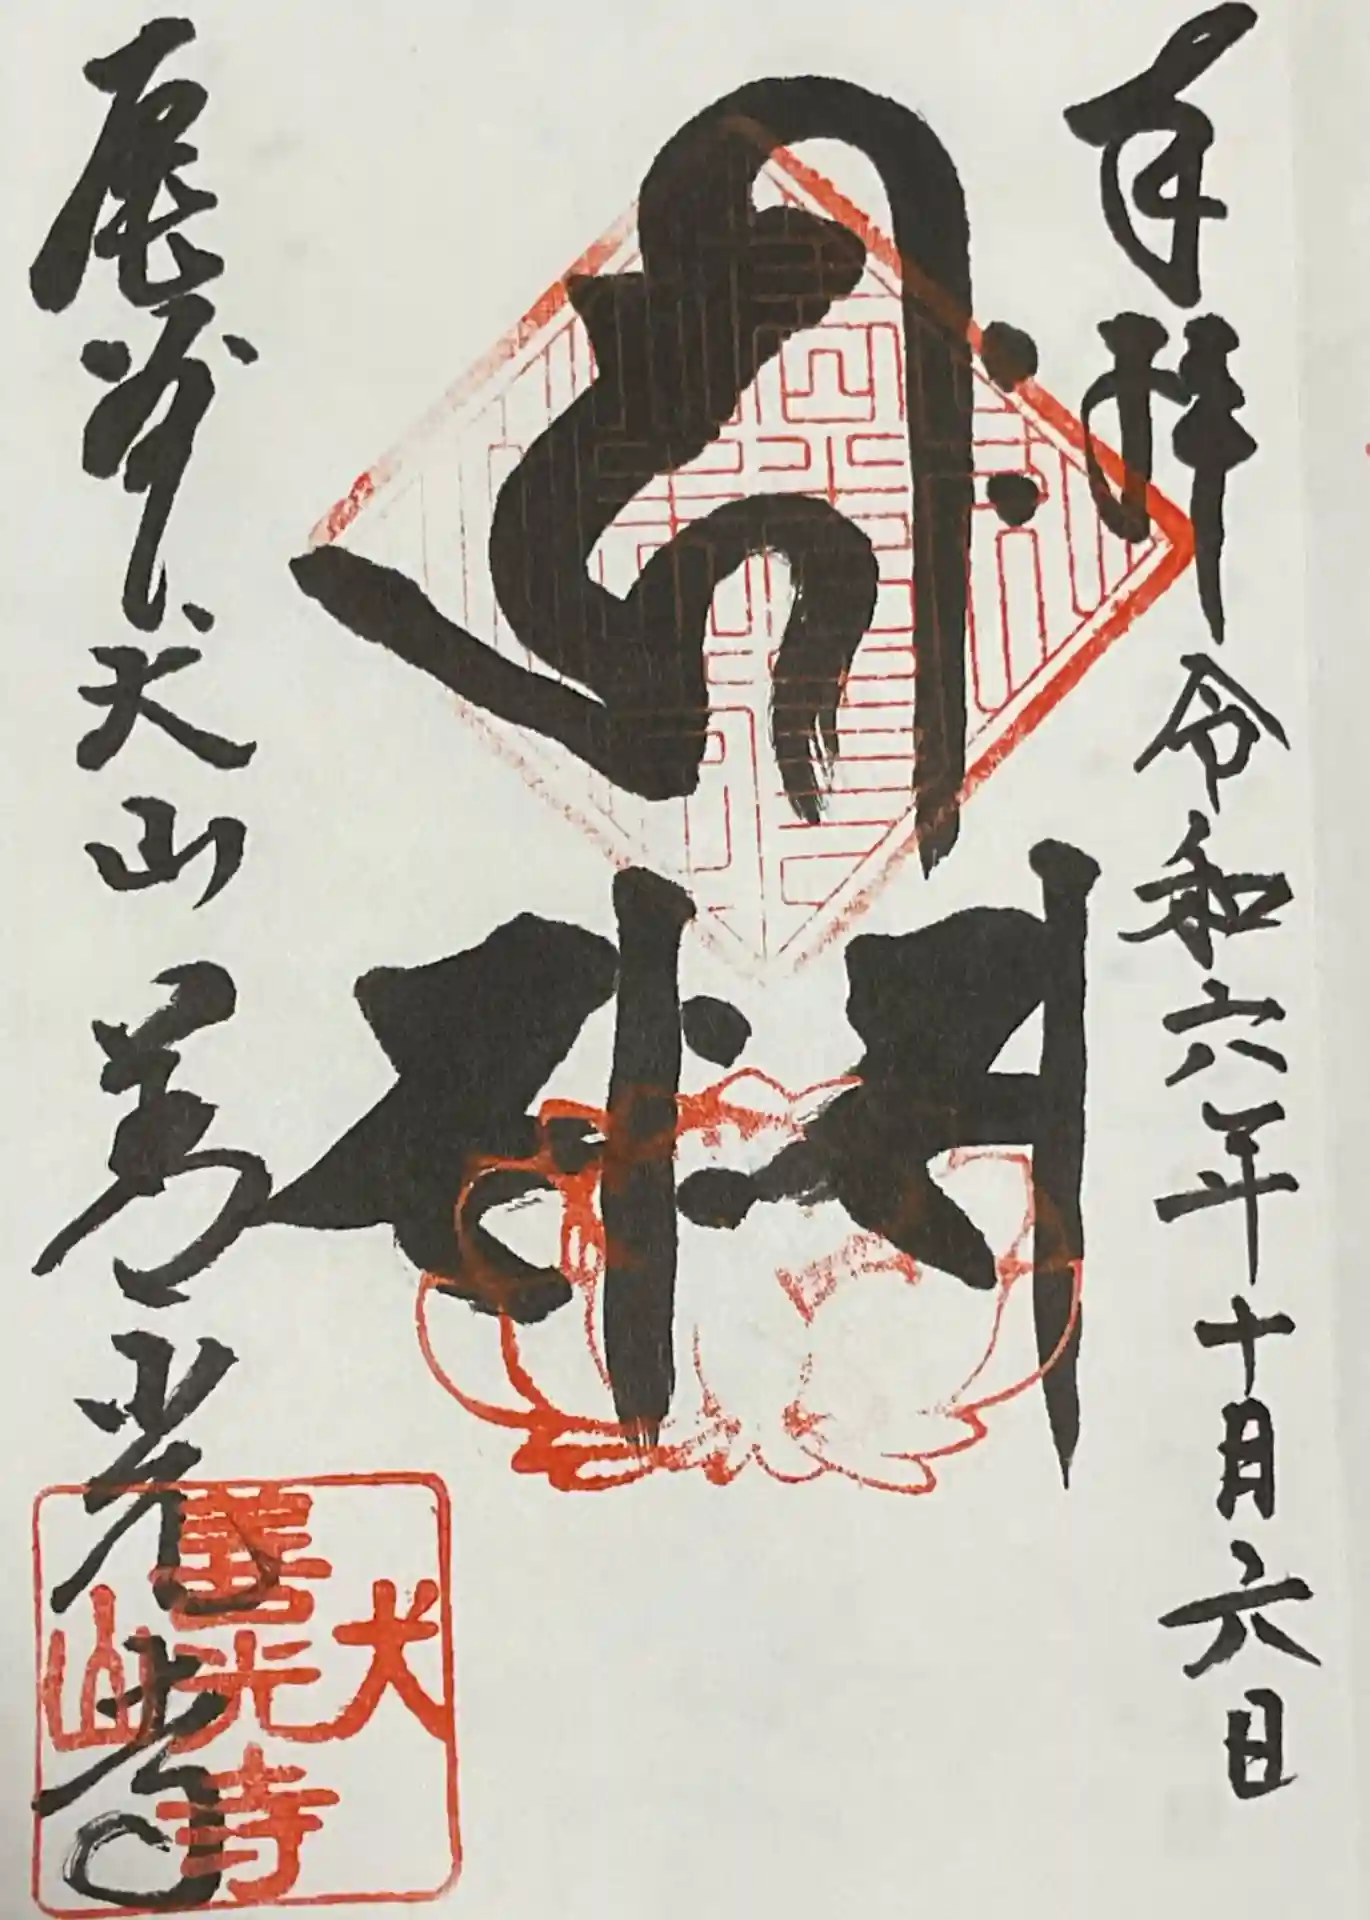 奉拝 令和六年十月六日
𑖮𑖿𑖨𑖱𑖾
𑖭
𑖭𑖾
尾州犬山 善光寺
犬山
善光寺